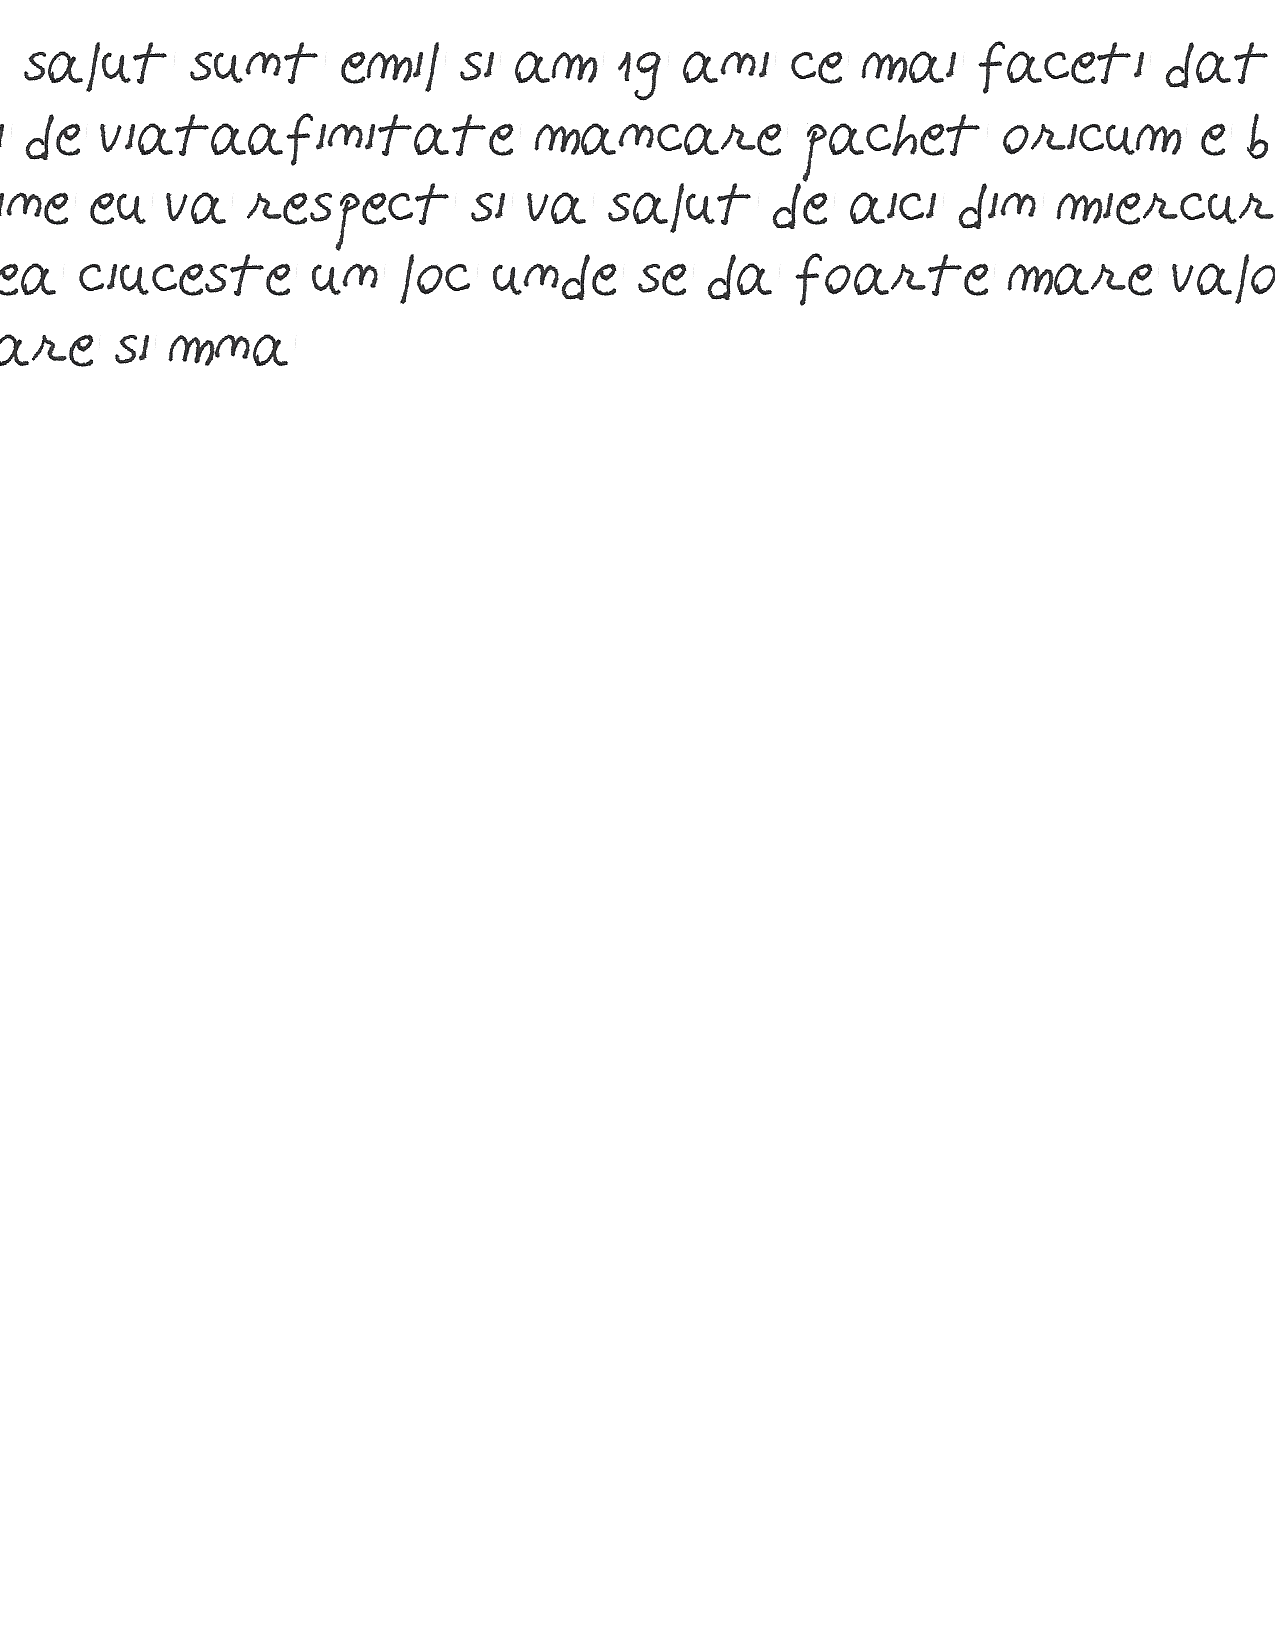 salut sunt emil si am 19 ani ce mai faceti dat
i de viataafinitate mancare pachet oricum e b
ine eu va respect si va salut de aici din miercur
ea ciuceste un loc unde se da foarte mare valo
are si mna